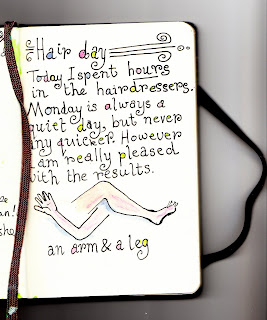 Hair day
Today I spent hours
in the hairdressers.
Monday is always a
quiet day, but never
any quicker. However
I am really pleased
with the results.
an arm & a leg